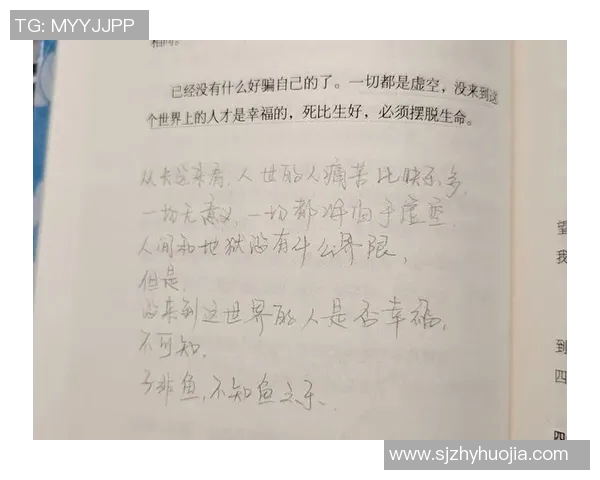 TG: MYYJJPP
相同。
已经没有什么好骗自己的了。一切都是虚空，没来到这
个世界上的人才是幸福的，死比生好，必须摆脱生命。
从长远来看，人世的人痛苦比快乐多，
一切无意义，一切都将归于虚空
人间和地狱没有什么界限，
但是，
没来到这世界的人是否幸福，
不可知，
子非鱼，不知鱼之乐、
望
我
到
四
四
www.sjzhyhuojia.com